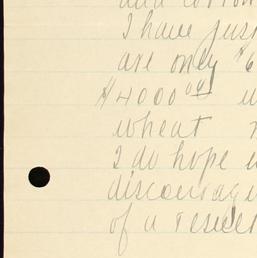 and
I have just
are only $6
$4000.00
wheat
I do hope
discourage
of a